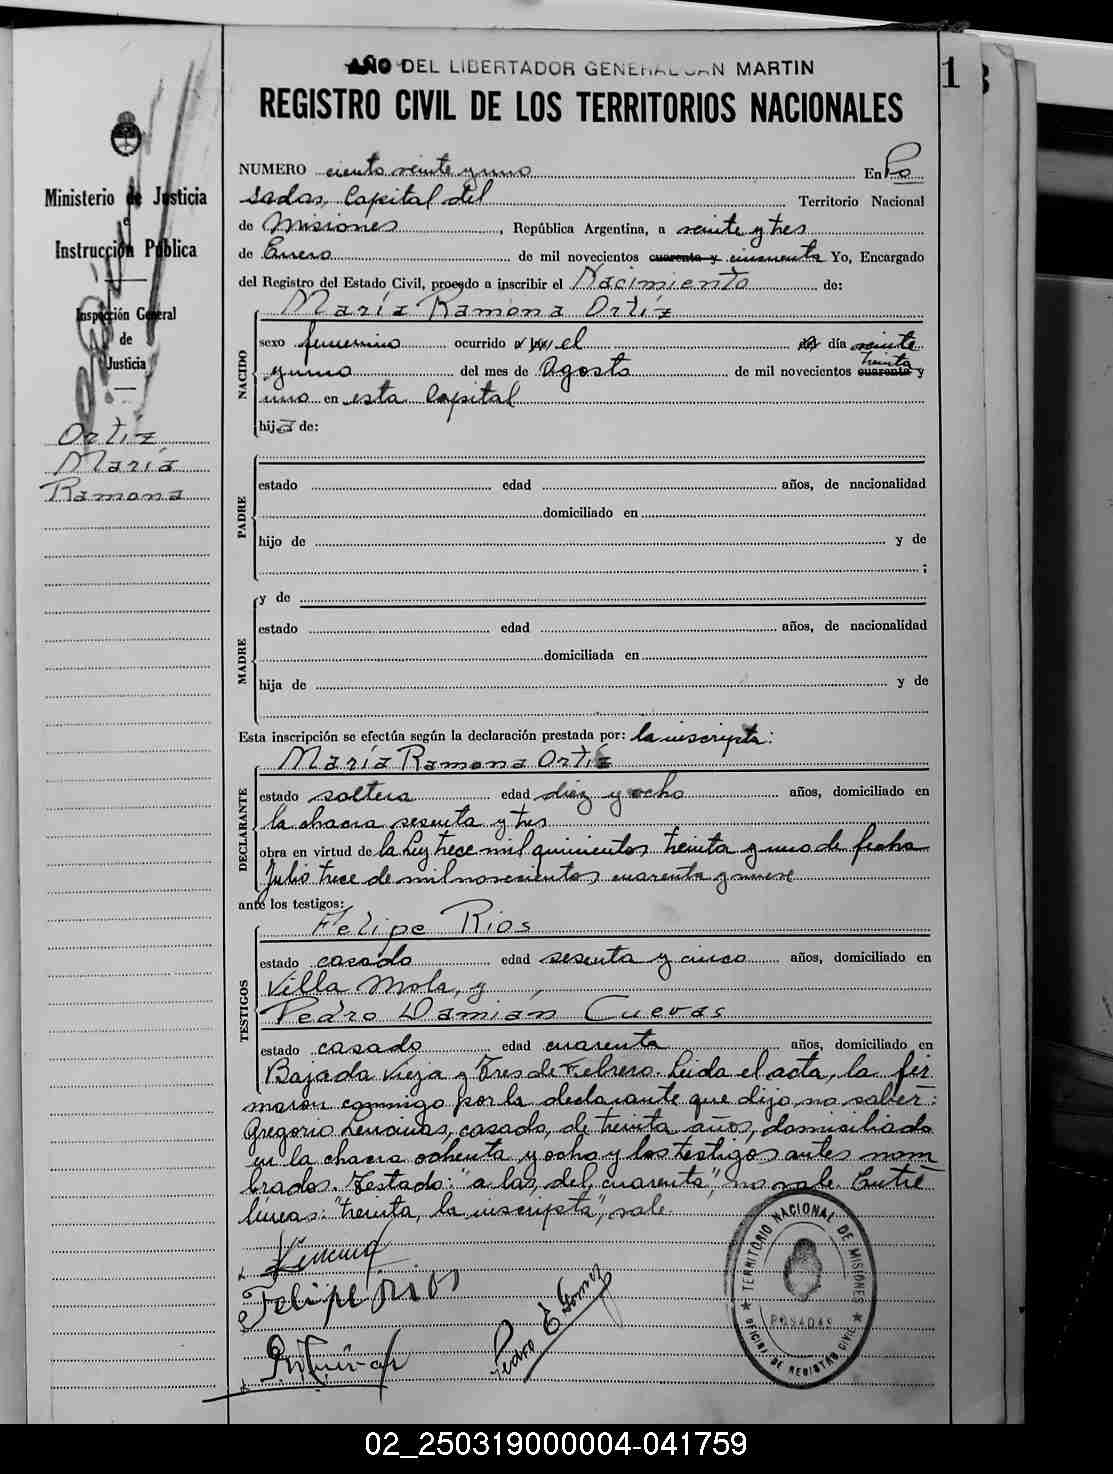 AÑO DEL LIBERTADOR GENERAL SAN MARTIN
REGISTRO CIVIL DE LOS TERRITORIOS NACIONALES
1
Ministerio de Justicia
e
Instrucción Pública
Inspección General
de
Justicia
Ortíz
María
Ramona
NUMERO ciento veinte y uno En Po
sadas, Capital del Territorio Nacional
de Misiones, República Argentina, a veinte y tres
de Enero de mil novecientos cuarenta y cincuenta Yo, Encargado
del Registro del Estado Civil, procedo a inscribir el Nacimiento de:
María Ramona Ortíz
NACIDO
sexo femenino ocurrido a las el del día veinte
y uno del mes de Agosto de mil novecientos cuarenta treinta y
uno en esta Capital
hija de:
PADRE
estado edad años, de nacionalidad
domiciliado en
hijo de y de
;
MADRE
y de
estado edad años, de nacionalidad
domiciliada en
hija de y de
Esta inscripción se efectúa según la declaración prestada por: la inscripta:
DECLARANTE
María Ramona Ortíz
estado soltera edad diez y ocho años, domiciliado en
la chacra sesenta y tres
obra en virtud de la Ley trece mil quinientos treinta y uno de fecha
Julio trece de mil novecientos cuarenta y nueve
ante los testigos:
TESTIGOS
Felipe Rios
estado casado edad sesenta y cinco años, domiciliado en
Villa Mola, y
Pedro Damián Cuevas
estado casado edad cuarenta años, domiciliado en
Bajada Vieja y Tres de Febrero. Leida el acta, la fir
maron conmigo por la declarante que dijo no saber:
Gregorio, casado, de treinta años, domiciliado
en la chacra ochenta y ocho y los testigos antes nom
brados. Testado: "a las, del, cuarenta", no vale. Entre
lineas: "treinta, la inscripta", vale.
Felipe Rios
Pedro E Gomez
TERRITORIO NACIONAL DE MISIONES
POSADAS
OFICINA DE REGISTRO CIVIL
02_250319000004-041759